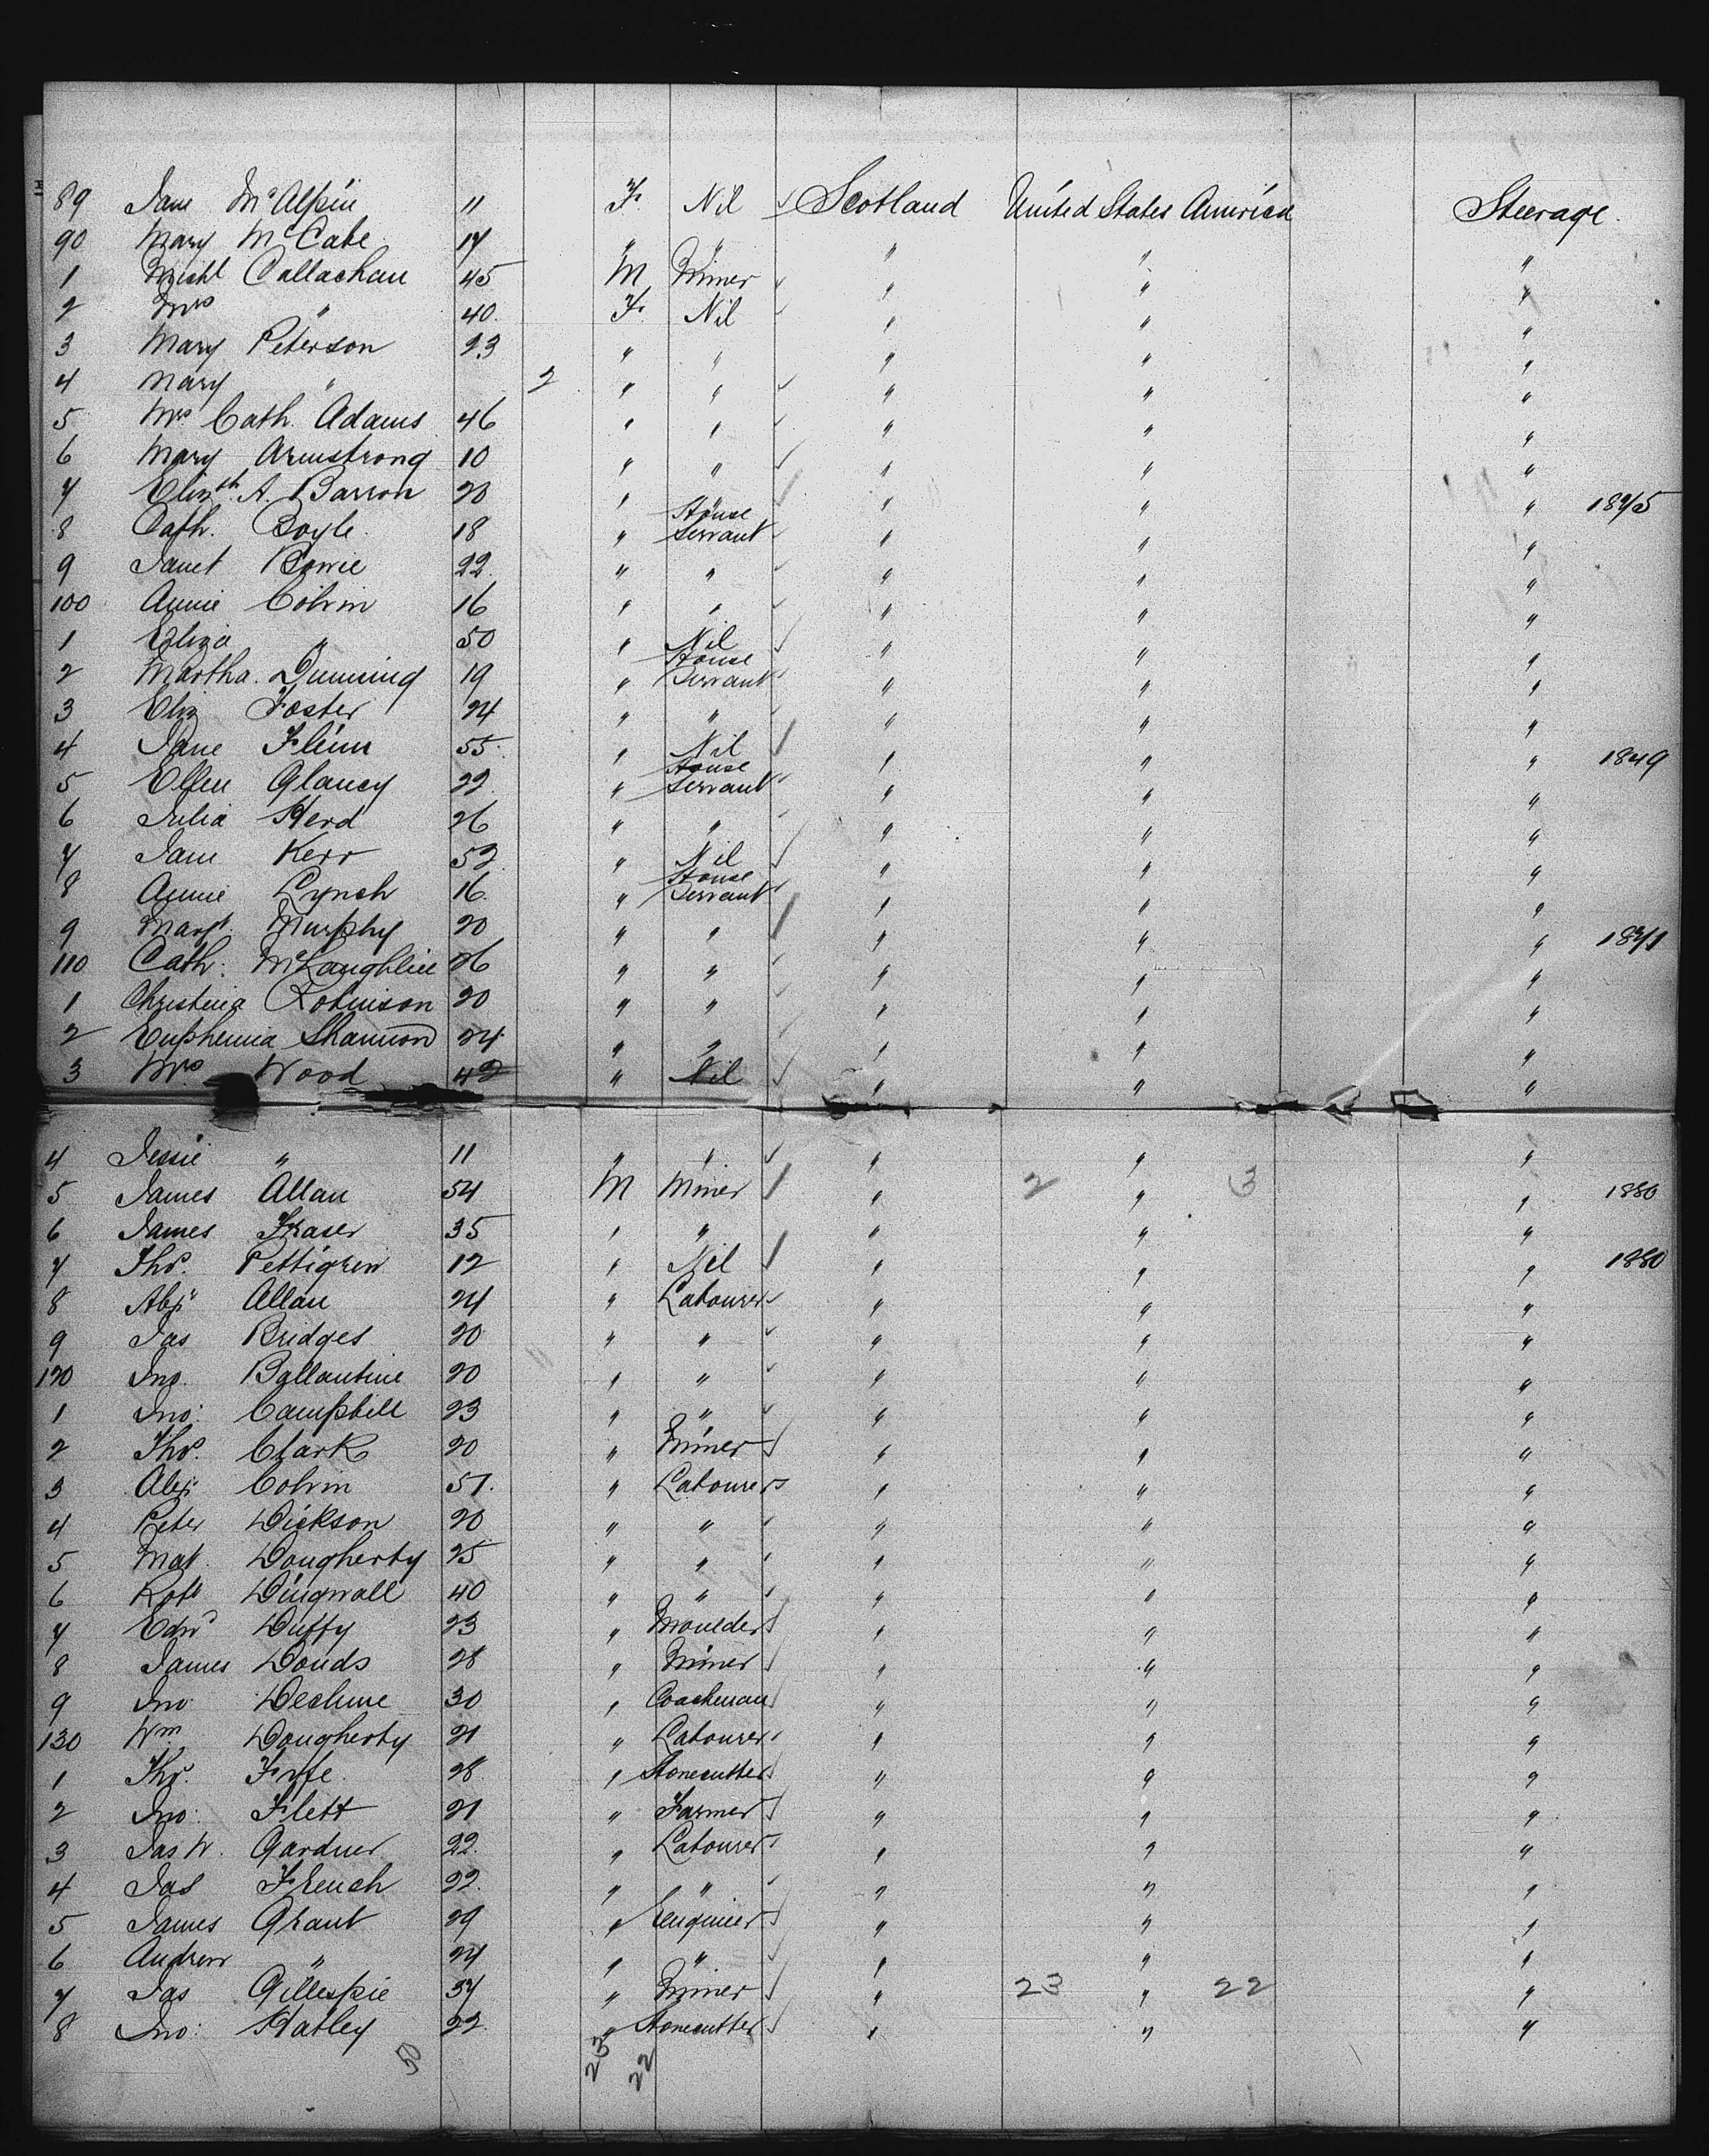 89 Jane McAlpin 11 F. Nil Scotland United States America Steerage.
90 Mary McCabe 17 " " " " "
1 Michl Callaghan 45 M Miner " " "
2 Mrs " 40. F. Nil " " "
3 Mary Peterson 23 " " " " "
4 Mary " 2 " " " " "
5 Mrs Cath. Adams 46 " " " " "
6 Mary Armstrong 10 " " " " "
7 Elizth A. Barron 20 " " " " " 1875
8 Cath. Boyle 18 " House Servant " " "
9 Janet Bowie 22. " " " " "
100 Annie Colvin 16 " " " " "
1 Eliza " 50 " Nil " " "
2 Martha. Dunning 19 " House Servant " " "
3 Eliz Foster 24 " " " " "
4 Jane Flinn 55. " Nil " " " 1849
5 Ellen Glancy 22. " House Servant " " "
6 Julia Herd 26 " " " " "
7 Jane Kerr 52. " Nil " " "
8 Annie Lynch 16. " House Servant " " "
9 Margt. Murphy 20 " " " " " 1871
110 Cath. McLaughlin 26 " " " " "
1 Christina Robinson 20 " " " " "
2 Euphemia Shannon 24. " " " " "
3 Mrs Wood 42 " Nil " " "
4 Jessie " 11 " " " " "
5 James Allan 54 M Miner " 2 " 3 " 1880
6 James Fraser 35 " " " " "
7 Thos. Pettigrew 12 " Nil " " " 1880
8 Alexr Allan 24 " Labourer " " "
9 Jas Bridges 20 " " " " "
120 Jno. Ballantine 20 " " " " "
1 Jno. Campbell 23 " " " " "
2 Thos. Clark 20 " Miner " " "
3 Alexr Colvin 51. " Labourer " " "
4 Peter Dickson 20 " " " " "
5 Mat. Dougherty 25 " " " " "
6 Robt Dingwall 40 " " " " "
7 Edwd Duffy 23 " Moulder " " "
8 James Douds 28 " Miner " " "
9 Jno 30 " Coachman " " "
130 Wm Dougherty 21 " Labourer " " "
1 Thos. Fyfe 28. " Stonecutter " " "
2 Jno. Flett 21 " Farmer " " "
3 Jas W. Gardner 22. " Labourer " " "
4 Jas French 22. " " " " "
5 James Grant 29 " Engineer " " "
6 Andrew " 24 " " " " "
7 Jas Gillespie 37 " Miner " 23 " 22 "
8 Jno. Hatley 22. " Stonecutter " " "
50 23 22